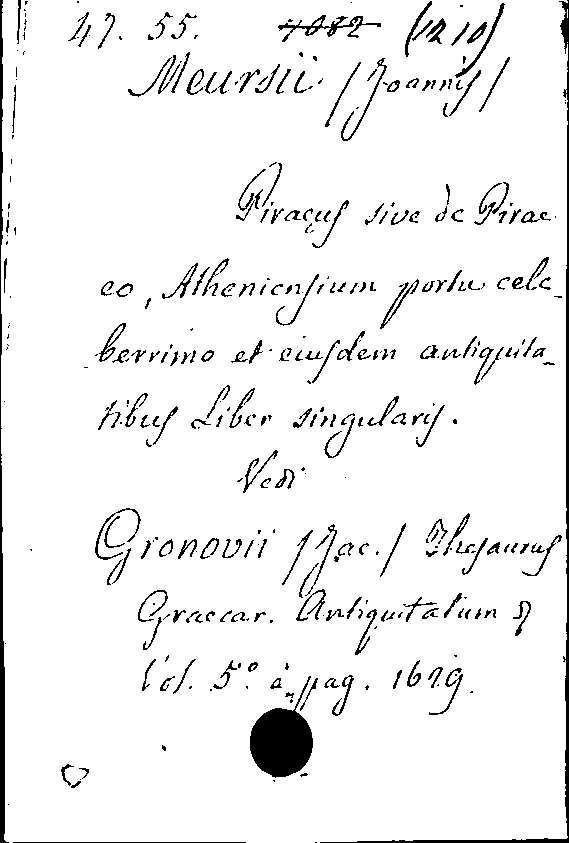 47. 55. 4082 (1210)
Meursii /Joannis/
Piraeus sive de Pirae
eo, Atheniensium portu cele-
berrimo et eiusdem antiquita-
tibus Liber singularis.
Vedi
Gronovii /Jac./ Thesaurus
Graecar. Antiquitatum
Vol. 5.° à pag. 1629.